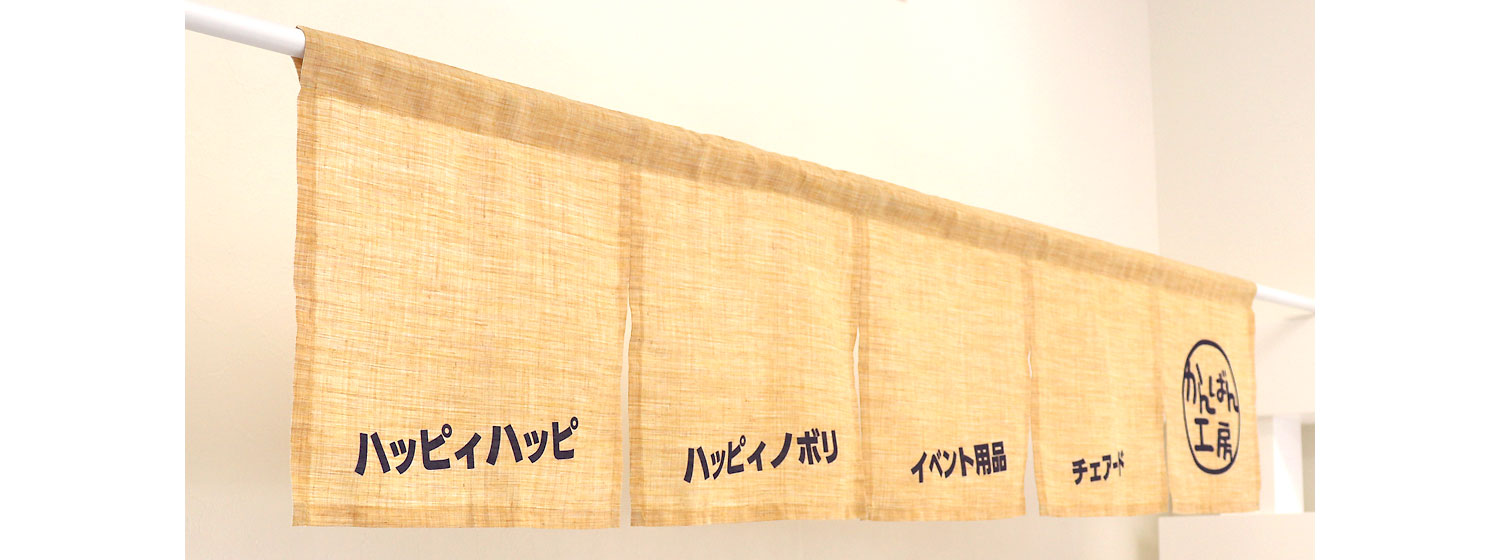 ハッピィハッピ
ハッピィノボリ
イベント用品
チェアード
かんばん
工房